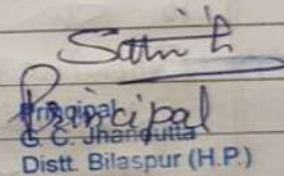 Principal
Principal
G. C. Jhandutta
Distt. Bilaspur (H.P.)